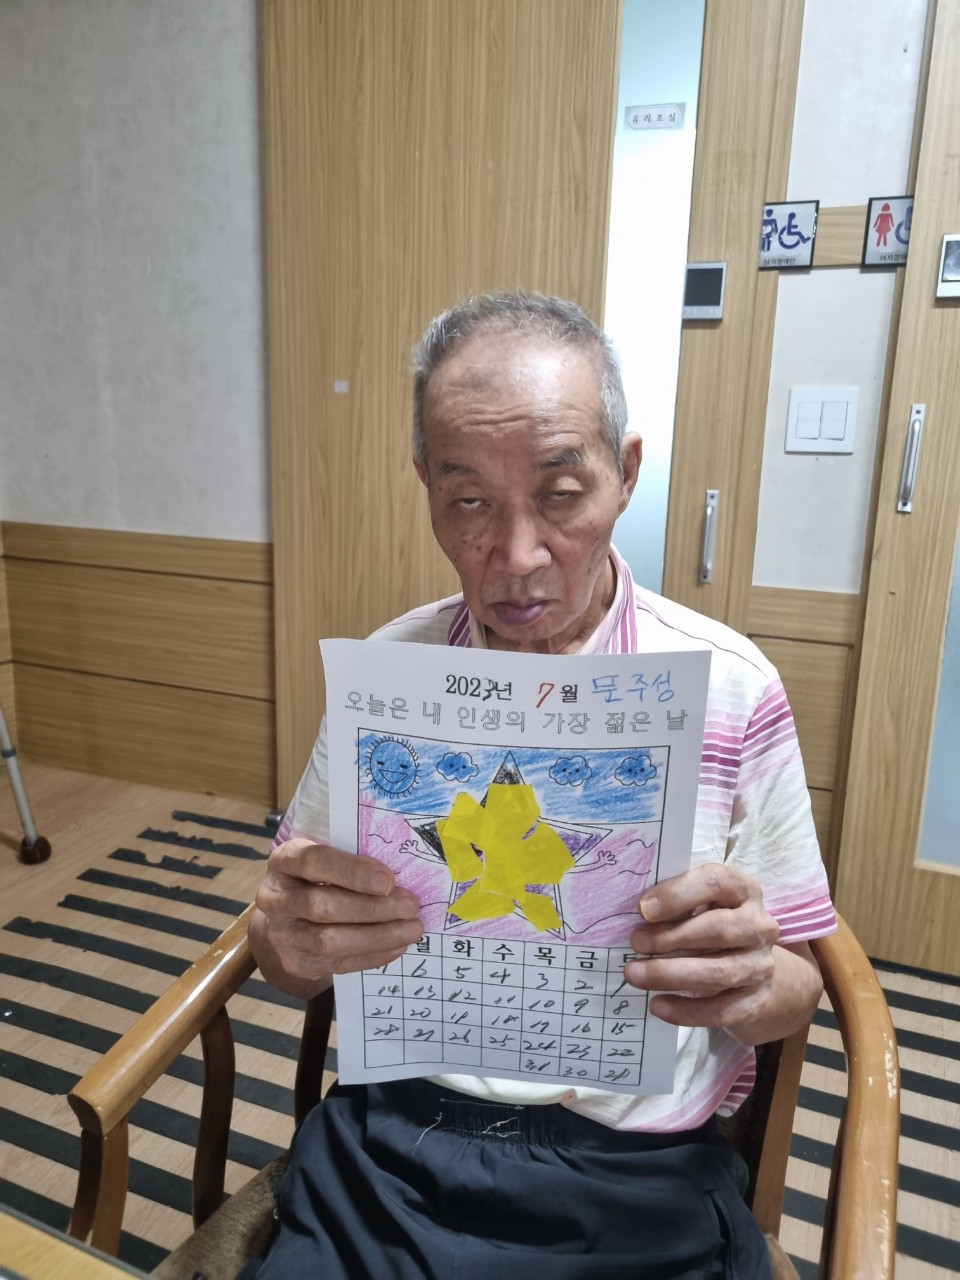 유리조심
남자장애인
여자장애
2023년 7월 문주성
오늘은 내 인생의 가장 젊은 날
월 화 수 목 금 토
7 6 5 4 3 2 1
14 13 12 11 10 9 8
21 20 19 18 17 16 15
28 27 26 25 24 23 22
31 30 29